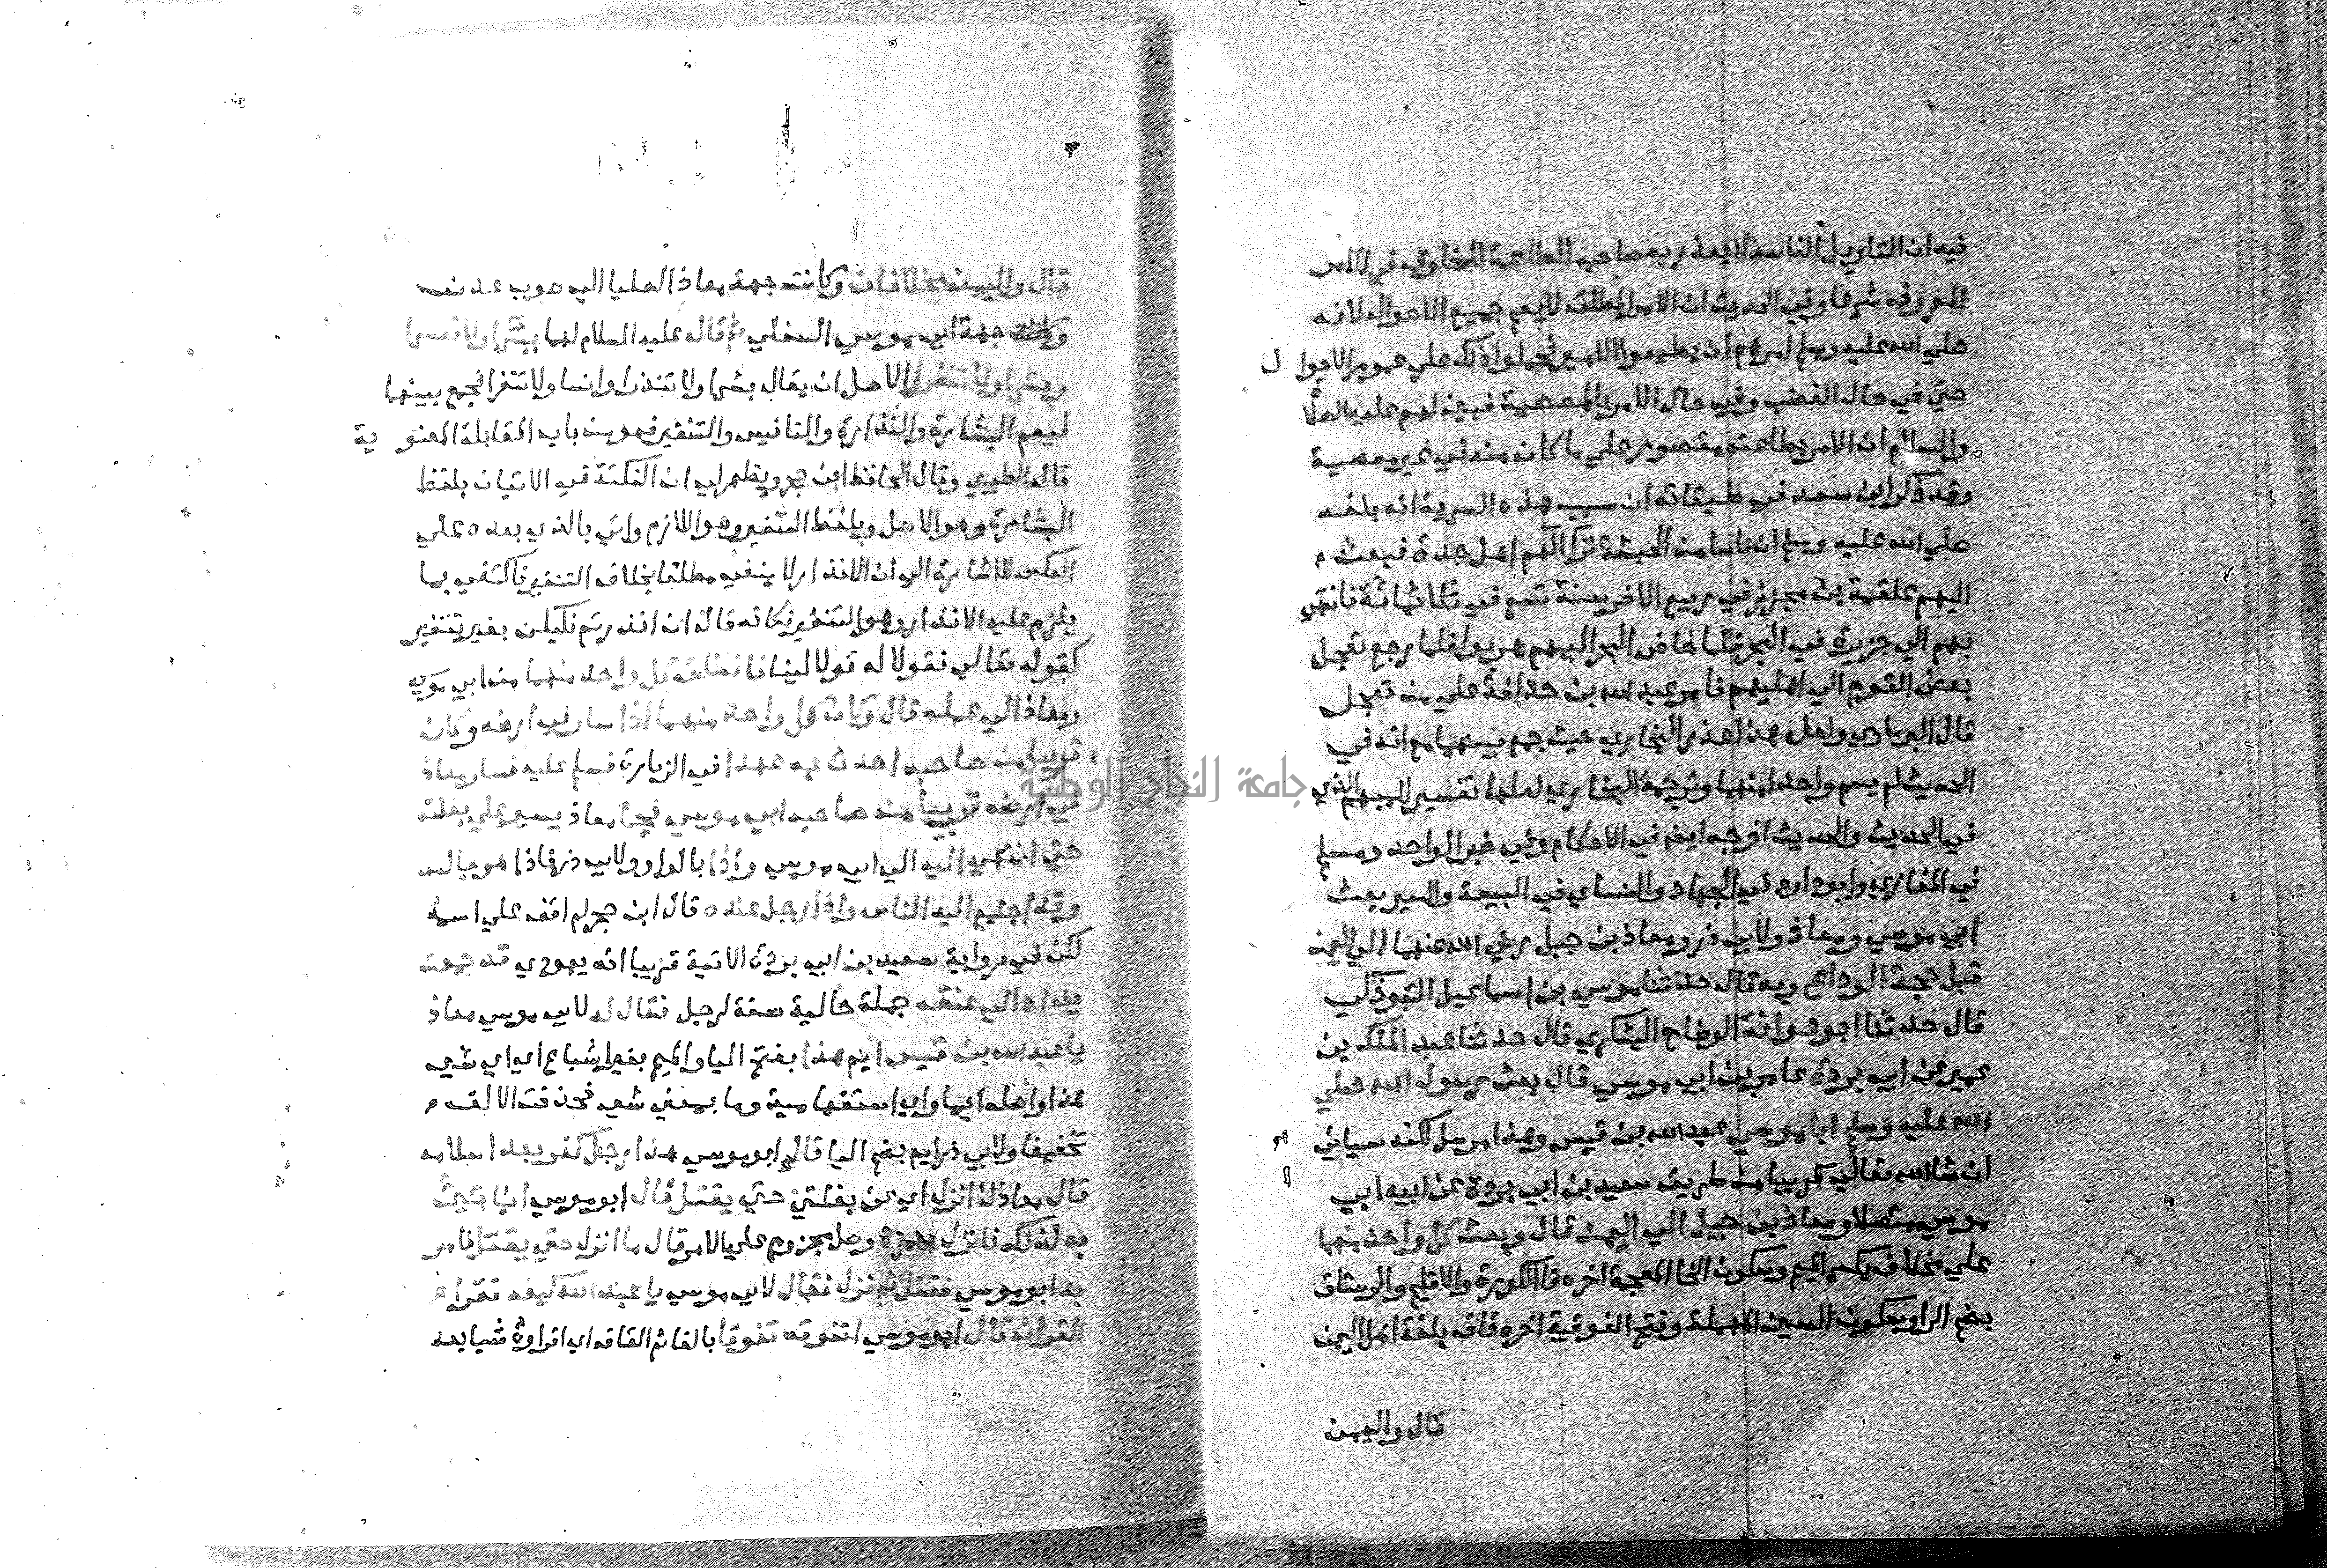 فيه ان التاويل الفاسد لا يعذر به صاحبه الطاعة للمخلوق في الامر
المعروف شرعا وفي الحديث ان الامر المطلق لا يعم جميع الاحوال لانه
صلي الله عليه وسلم امرهم ان يطيعوا الامير فحملوا ذلك علي عموم الاحوال
حتي في حال الغضب وفي حال الامر بالمعصية فبين لهم عليه الصلاة
والسلام ان الامر بطاعته مقصور علي ما كان منه في غير معصية
وقد ذكر ابن سعد في طبقاته ان سبب هذه السرية انه بلغه
صلي الله عليه وسلم ان ناسا من الحبشة تراآهم اهل جدة فبعث
اليهم علقمة بن مجزز في ربيع الاخر سنة تسع في ثلاثمائة فانتهي
بهم الي جزيرة في البحر فلما خاض البحر اليهم هربوا فلما رجع تعجل
بعض القوم الي اهليهم فامر عبد الله بن حذافة علي من تعجل
قال البرماوي ولعل هذا عذر البخاري حيث جمع بينهما مع انه في
الحديث لم يسم واحدا منهما وترجمة البخاري لعلها تفسير للمبهم الذي
في الحديث والحديث اخرجه ايضا في الاحكام وفي خبر الواحد ومسلم
في المغازي وابو داود في الجهاد والنساي في البيعة والسير بعث
ابي موسي ومعاذ ولابي ذر ومعاذ بن جبل رضي الله عنهما الي اليمن
قبل حجة الوداع وبه قال حدثنا موسي بن اسماعيل التبوذكي
قال حدثنا ابو عوانة الوضاح اليشكري قال حدثنا عبد الملك بن
عمير عن ابي بردة عامر بن ابي موسي قال بعث رسول الله صلي
الله عليه وسلم ابا موسي عبد الله بن قيس وهذا مرسل لكنه سياتي
ان شا الله تعالي قريبا من طريق سعيد بن ابي بردة عن ابيه ابي
موسي متصلا ومعاذ بن جبل الي اليمن قال وبعث كل واحد منهما
علي مخلاف بكسر الميم وسكون الخا المعجمة اخره فا الكورة والاقليم والرستاق
بضم الرا وسكون السين المهملة وفتح الفوقية اخره قاف بلغة اهل اليمن
قال واليمن
قال واليمن مخلافان وكانت جهة معاذ العليا الي صوب عدن
وكانت جهة ابي موسي السفلي ثم قال عليه السلام لهما يسرا ولا تعسرا
وبشرا ولا تنفرا الاصل ان يقال بشرا ولا تنذرا وانسا ولا تنفرا فجمع بينهما
ليعم البشارة والنذارة والتانيس والتنفير فهو من باب المقابلة المعنوية
قاله الطيبي وقال الحافظ ابن حجر ويظهر لي ان النكتة في الاتيان بلفظ
البشارة وهو الاصل وبلفظ التنفير وهو اللازم واتي بالذي بعده علي
العكس للاشارة الي ان الانذار لا ينفي مطلقا بخلاف التنفير فاكتفي بما
يلزم عليه الانذار وهو التنفير فكانه قال ان انذرتم فليكن بغير تنفير
كقوله تعالي فقولا له قولا لينا فانطلق كل واحد منهما من ابي موسي
ومعاذ الي عمله قال وكان كل واحد منهما اذا سار في ارضه وكان
قريبا من صاحبه احدث به عهدا في الزيارة فسلم عليه فسار معاذ
في ارضه قريبا من صاحبه ابي موسي فجا معاذ يسير علي بغلته
حتي انتهي اليه الي ابي موسي واذا بالواو ولابي ذر فاذا هو جالس
وقد اجتمع اليه الناس واذا رجل عنده قال ابن حجر لم اقف علي اسمه
لكن في رواية سعيد بن ابي بردة الاتية قريبا انه يهودي قد جمعت
يداه الي عنقه جملة حالية صفة لرجل فقال له لابي موسي معاذ
يا عبد الله بن قيس ايم هذا بفتح اليا والميم بغير اشباع اي اي شي
هذا واصله ايما واي استفهامية وما بمعني شي فحذفت الالف
تخفيفا ولابي ذر ايم بضم اليا قال ابو موسي هذا رجل كفر بعد اسلامه
قال معاذ لا انزل اي عن بغلتي حتي يقتل قال ابو موسي انما جيئ
به لذلك فانزل بهمزة وصل مجزوم علي الامر قال ما انزل حتي يقتل فامر
به ابو موسي فقتل ثم نزل فقال لابي موسي يا عبد الله كيف تقرا
القران قال ابو موسي اتفوقه تفوقا بالفا ثم القاف اي اقراوه شيا بعد
جامعة النجاح الوطنية